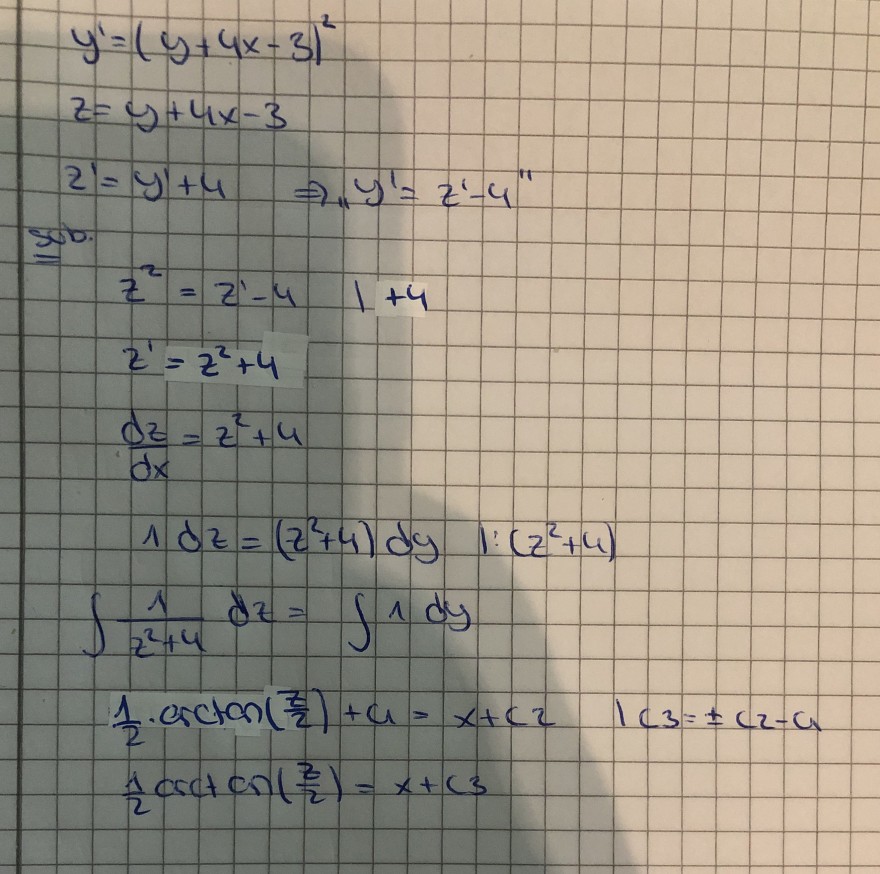 y' = (y + 4x - 3)²
z = y + 4x - 3
z' = y' + 4 ⇒ „y' = z' - 4"
Sub.
z² = z' - 4 | +4
z' = z² + 4
dz/dx = z² + 4
1 dz = (z² + 4) dy |: (z² + 4)
∫ 1/(z² + 4) dz = ∫ 1 dy
1/2 · arctan(z/2) + C1 = x + C2 | C3 = ± C2 - C1
1/2 arctan(z/2) = x + C3